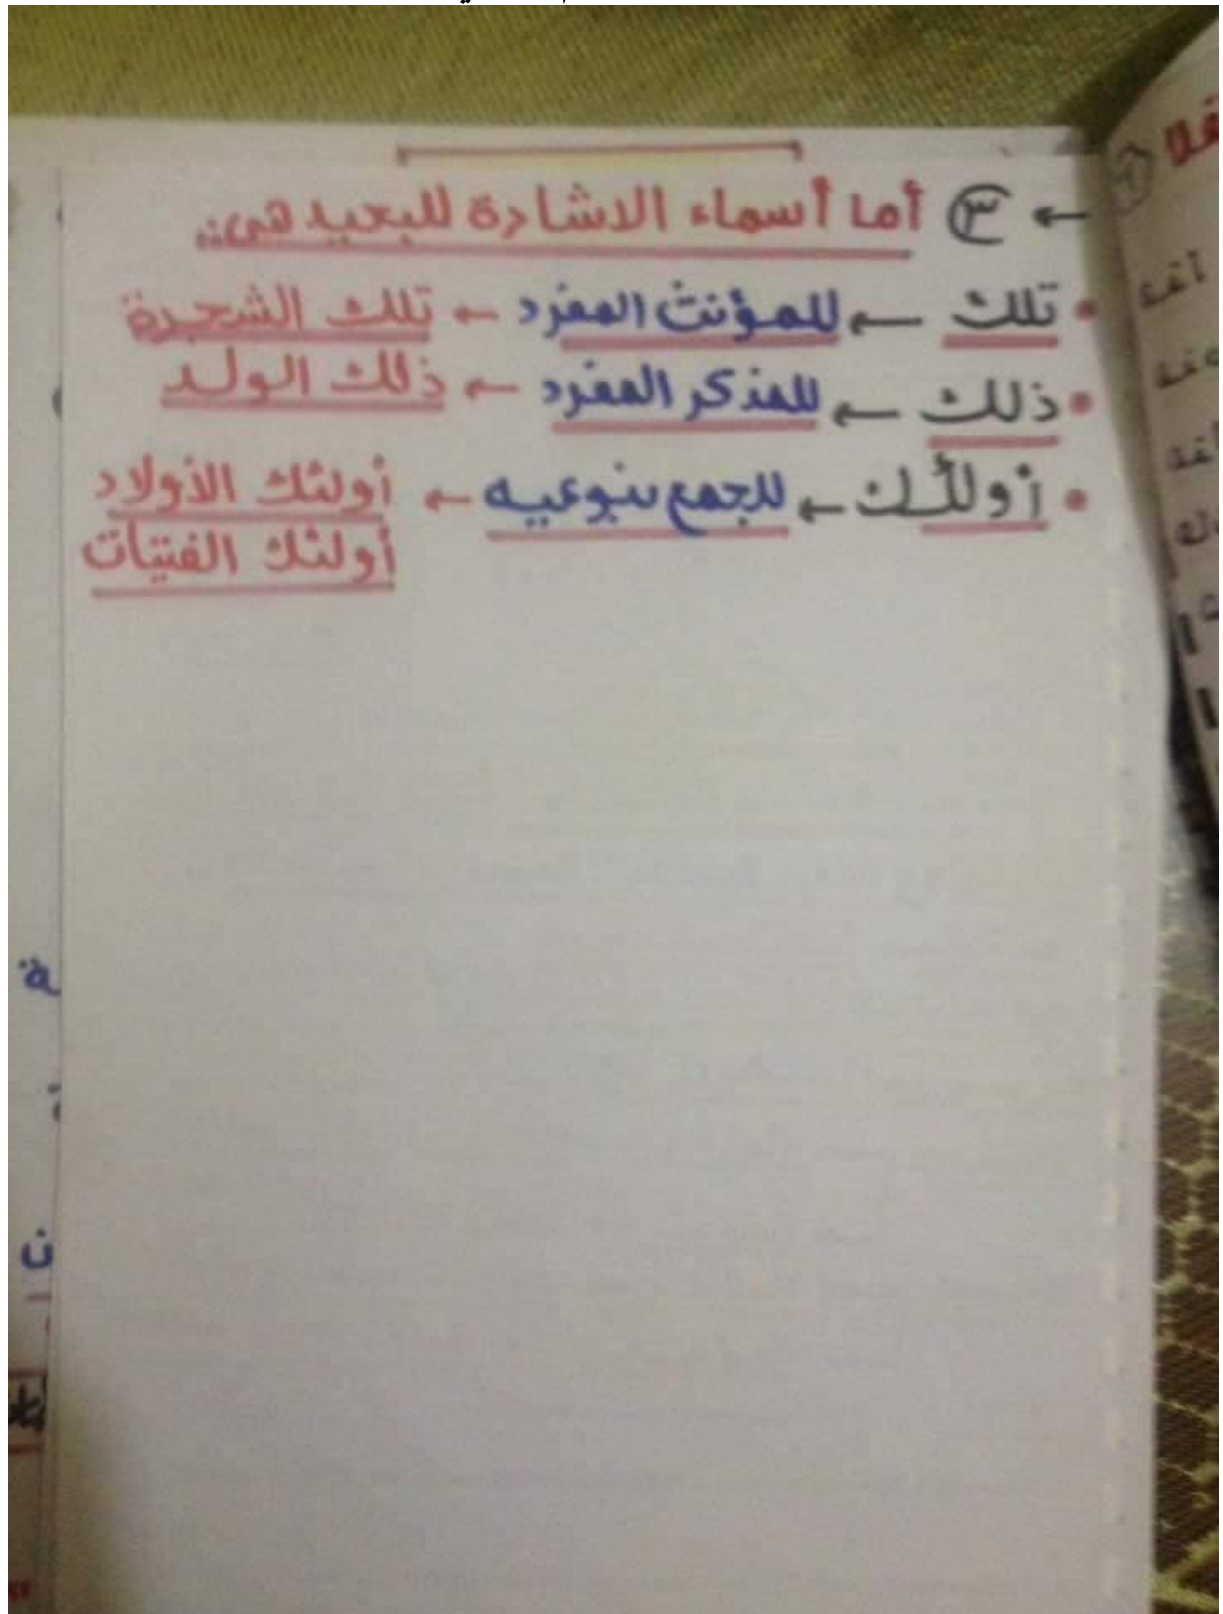 ← ٣ أما أسماء الاشارة للبعيد هي..
• تلك ← للمؤنث المفرد ← تلك الشجرة
• ذلك ← للمذكر المفرد ← ذلك الولد
• أولئك ← للجمع بنوعيه ← أولئك الأولاد
أولئك الفتيات